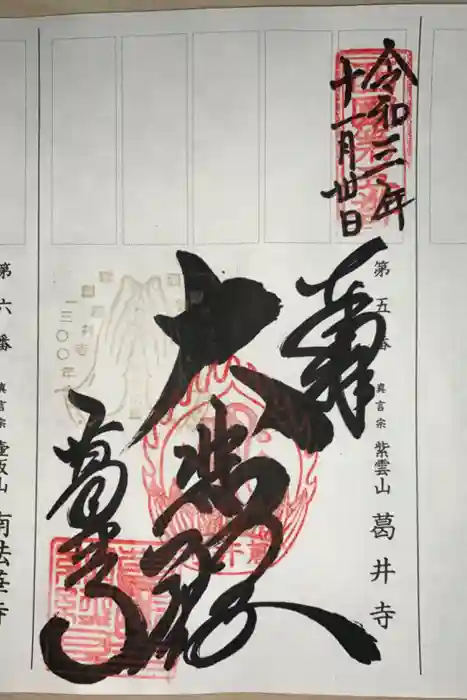 令和三年
十一月廿日
奉拝
大悲殿
葛井寺
第五番 真言宗 紫雲山 葛井寺
西国第五番
一三〇〇年
第六番 真言宗 壷阪山 南法華寺